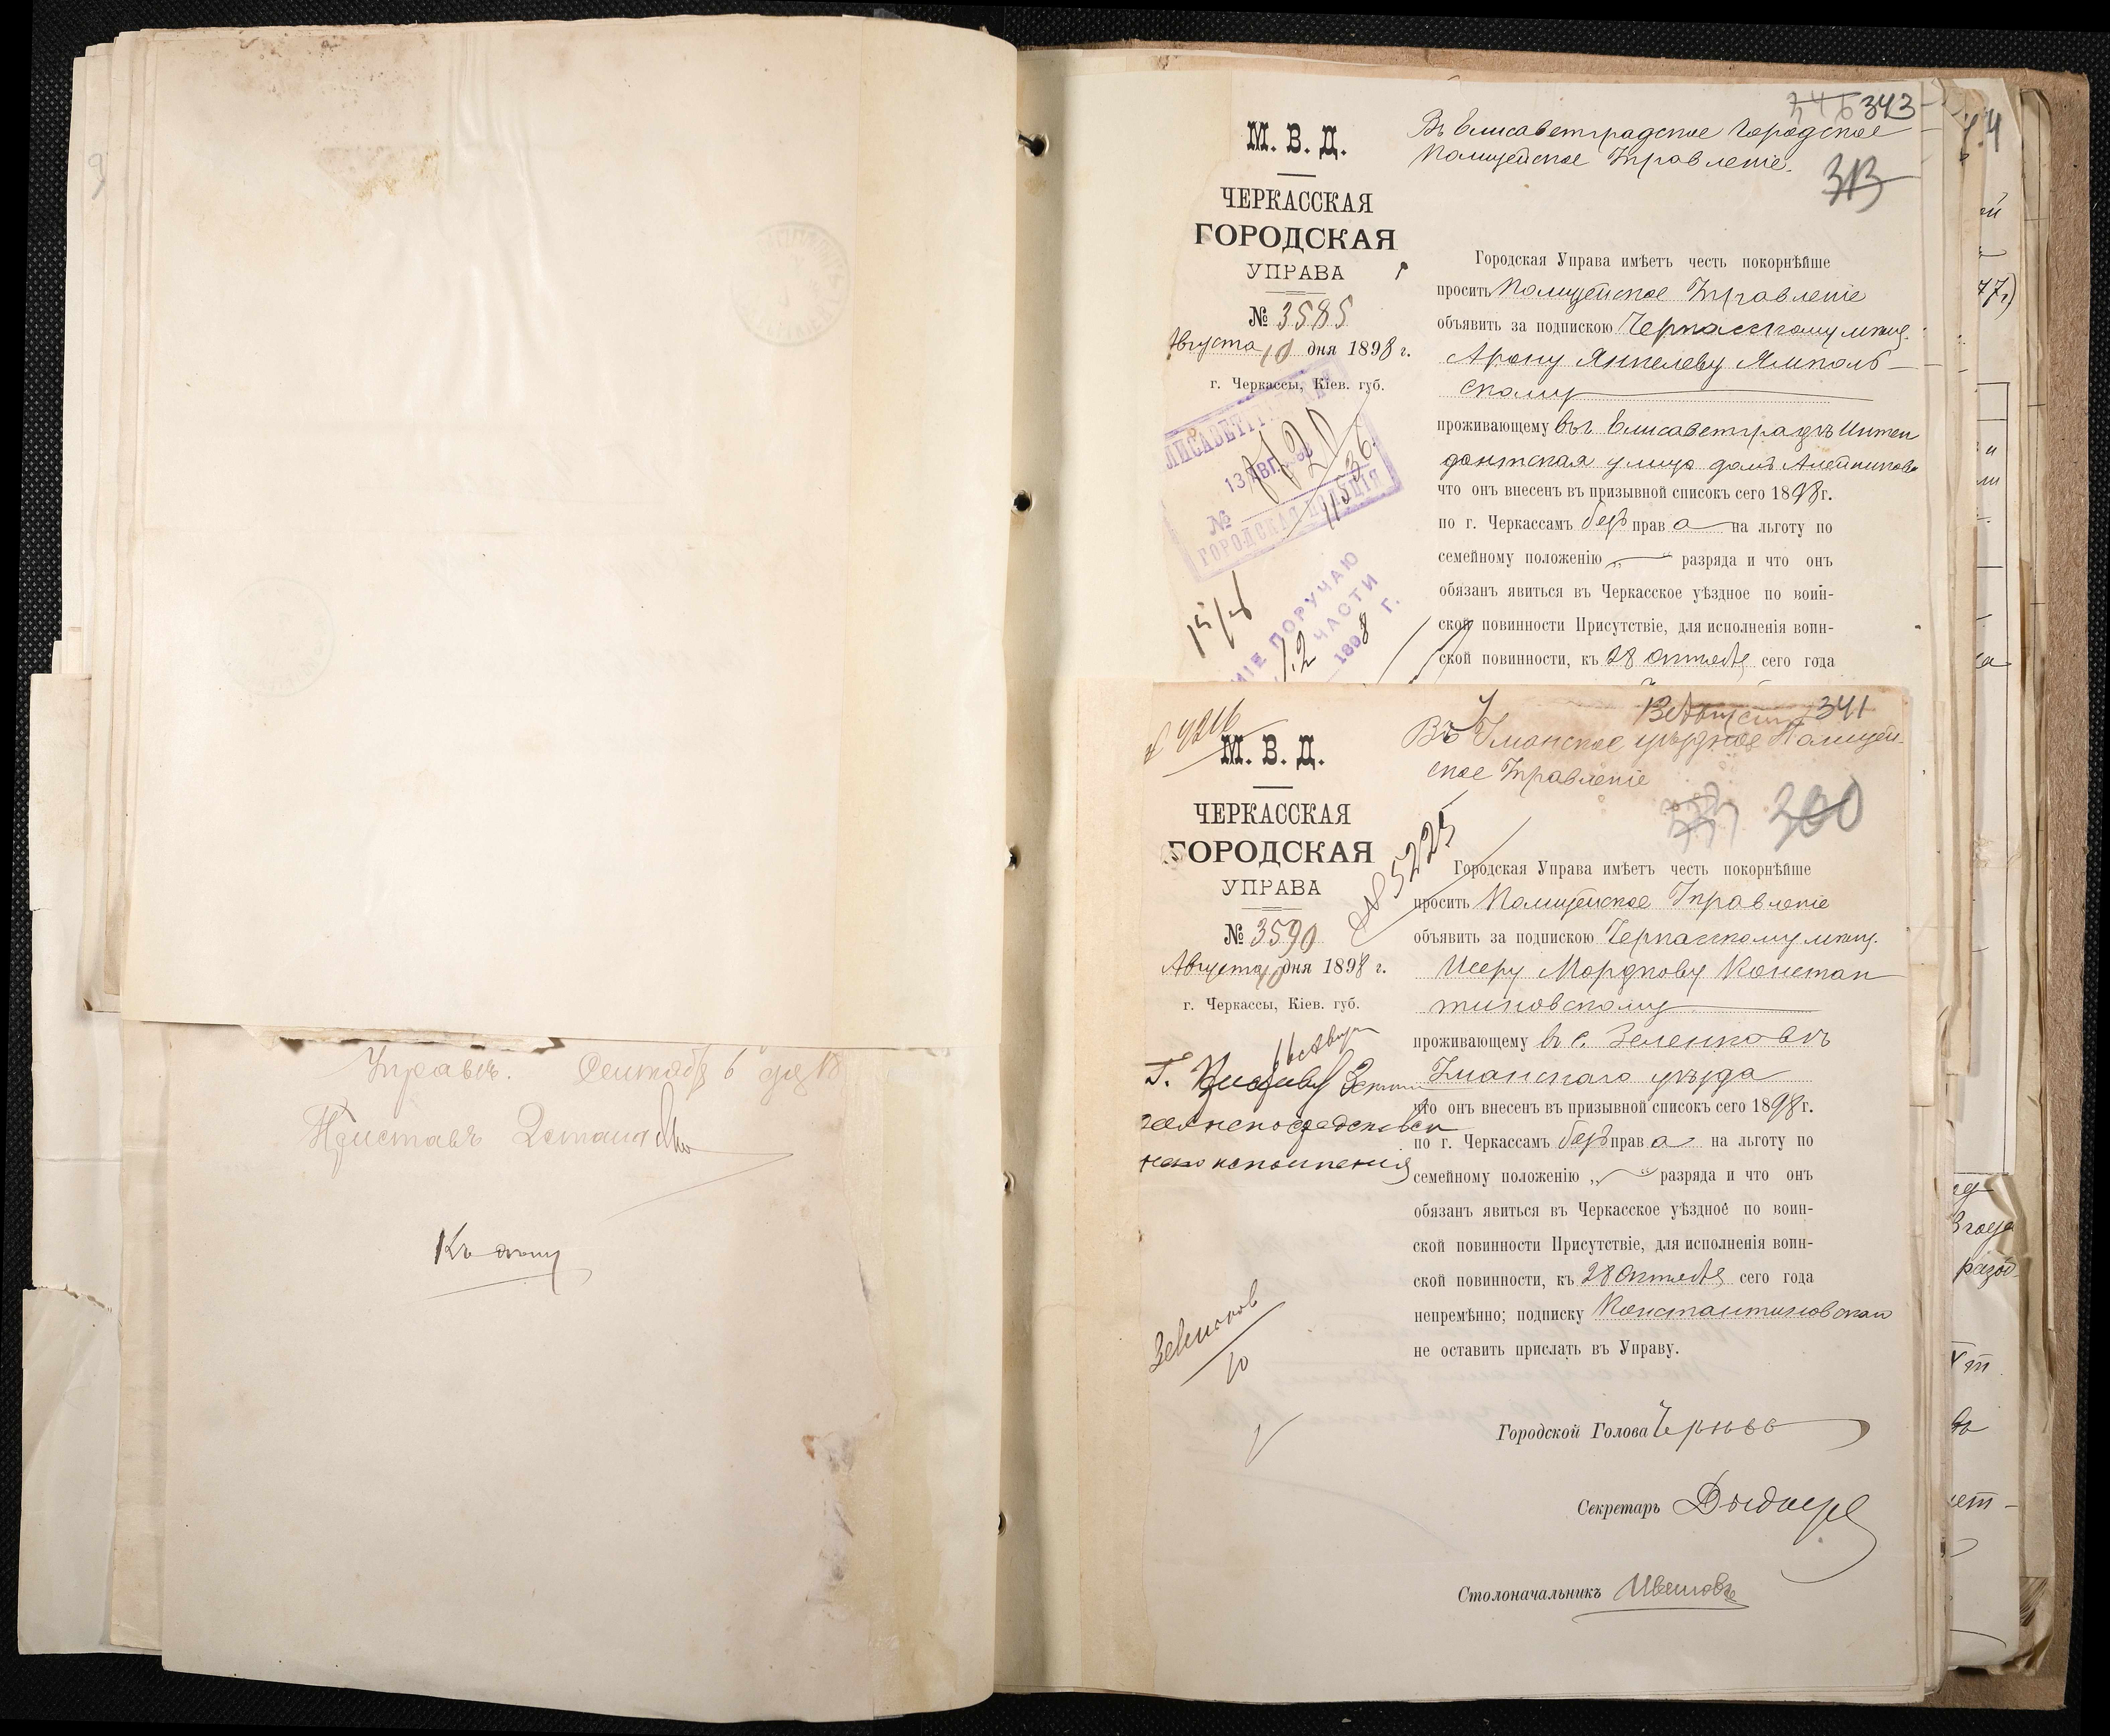 Управѣ. Сентября 6 дня 18
Приставъ
Къ дѣлу
346 343
313
М. В. Д.
ЧЕРКАССКАЯ
ГОРОДСКАЯ
УПРАВА
№ 3585
Августа 10 дня 1898 г.
г. Черкассы, Кіев. губ.
ЛИСАВЕТГР
13 АВГ. 98
№ 11536.
ГОРОДСКАЯ ПОЛИЦІЯ
НІЕ ПОРУЧАЮ
ЧАСТИ
1898 Г.
Въ Елисаветградское Городское
Полицейское Управленіе.
Городская Управа имѣетъ честь покорнѣйше
просить Полицейское Управленіе
объявить за подпискою Черкасскому мѣщ.
Арону Янкелеву Ямполь-
скому
проживающему въ г. Елисаветградѣ Интен
дантская улица домъ Алейникова
что онъ внесенъ въ призывной списокъ сего 1898 г.
по г. Черкассамъ безъ права на льготу по
семейному положенію „ — “ разряда и что онъ
обязанъ явиться въ Черкасское уѣздное по воин-
ской повинности Присутствіе, для исполненія воин-
ской повинности, къ 28 октября сего года
341
№ 4216
М. В. Д.
ЧЕРКАССКАЯ
ГОРОДСКАЯ
УПРАВА
№ 3590
Августа 10 дня 1898 г.
г. Черкассы, Кіев. губ.
№ 5225
16 Авгу
Г. Приставу
исполненія
10
Въ Уманское уѣздное Полицей-
ское Управленіе
300
Городская Управа имѣетъ честь покорнѣйше
просить Полицейское Управленіе
объявить за подпискою Черкасскому мѣщ.
Исеру Мордкову Констан
тиновскому
проживающему въ с. Зеленковѣ
Уманскаго уѣзда
что онъ внесенъ въ призывной списокъ сего 1898 г.
по г. Черкассамъ безъ права на льготу по
семейному положенію „ — “ разряда и что онъ
обязанъ явиться въ Черкасское уѣздное по воин-
ской повинности Присутствіе, для исполненія воин-
ской повинности, къ 28 октября сего года
непремѣнно; подписку Константиновскаго
не оставить прислать въ Управу.
Городской Голова
Секретарь
Столоначальникъ